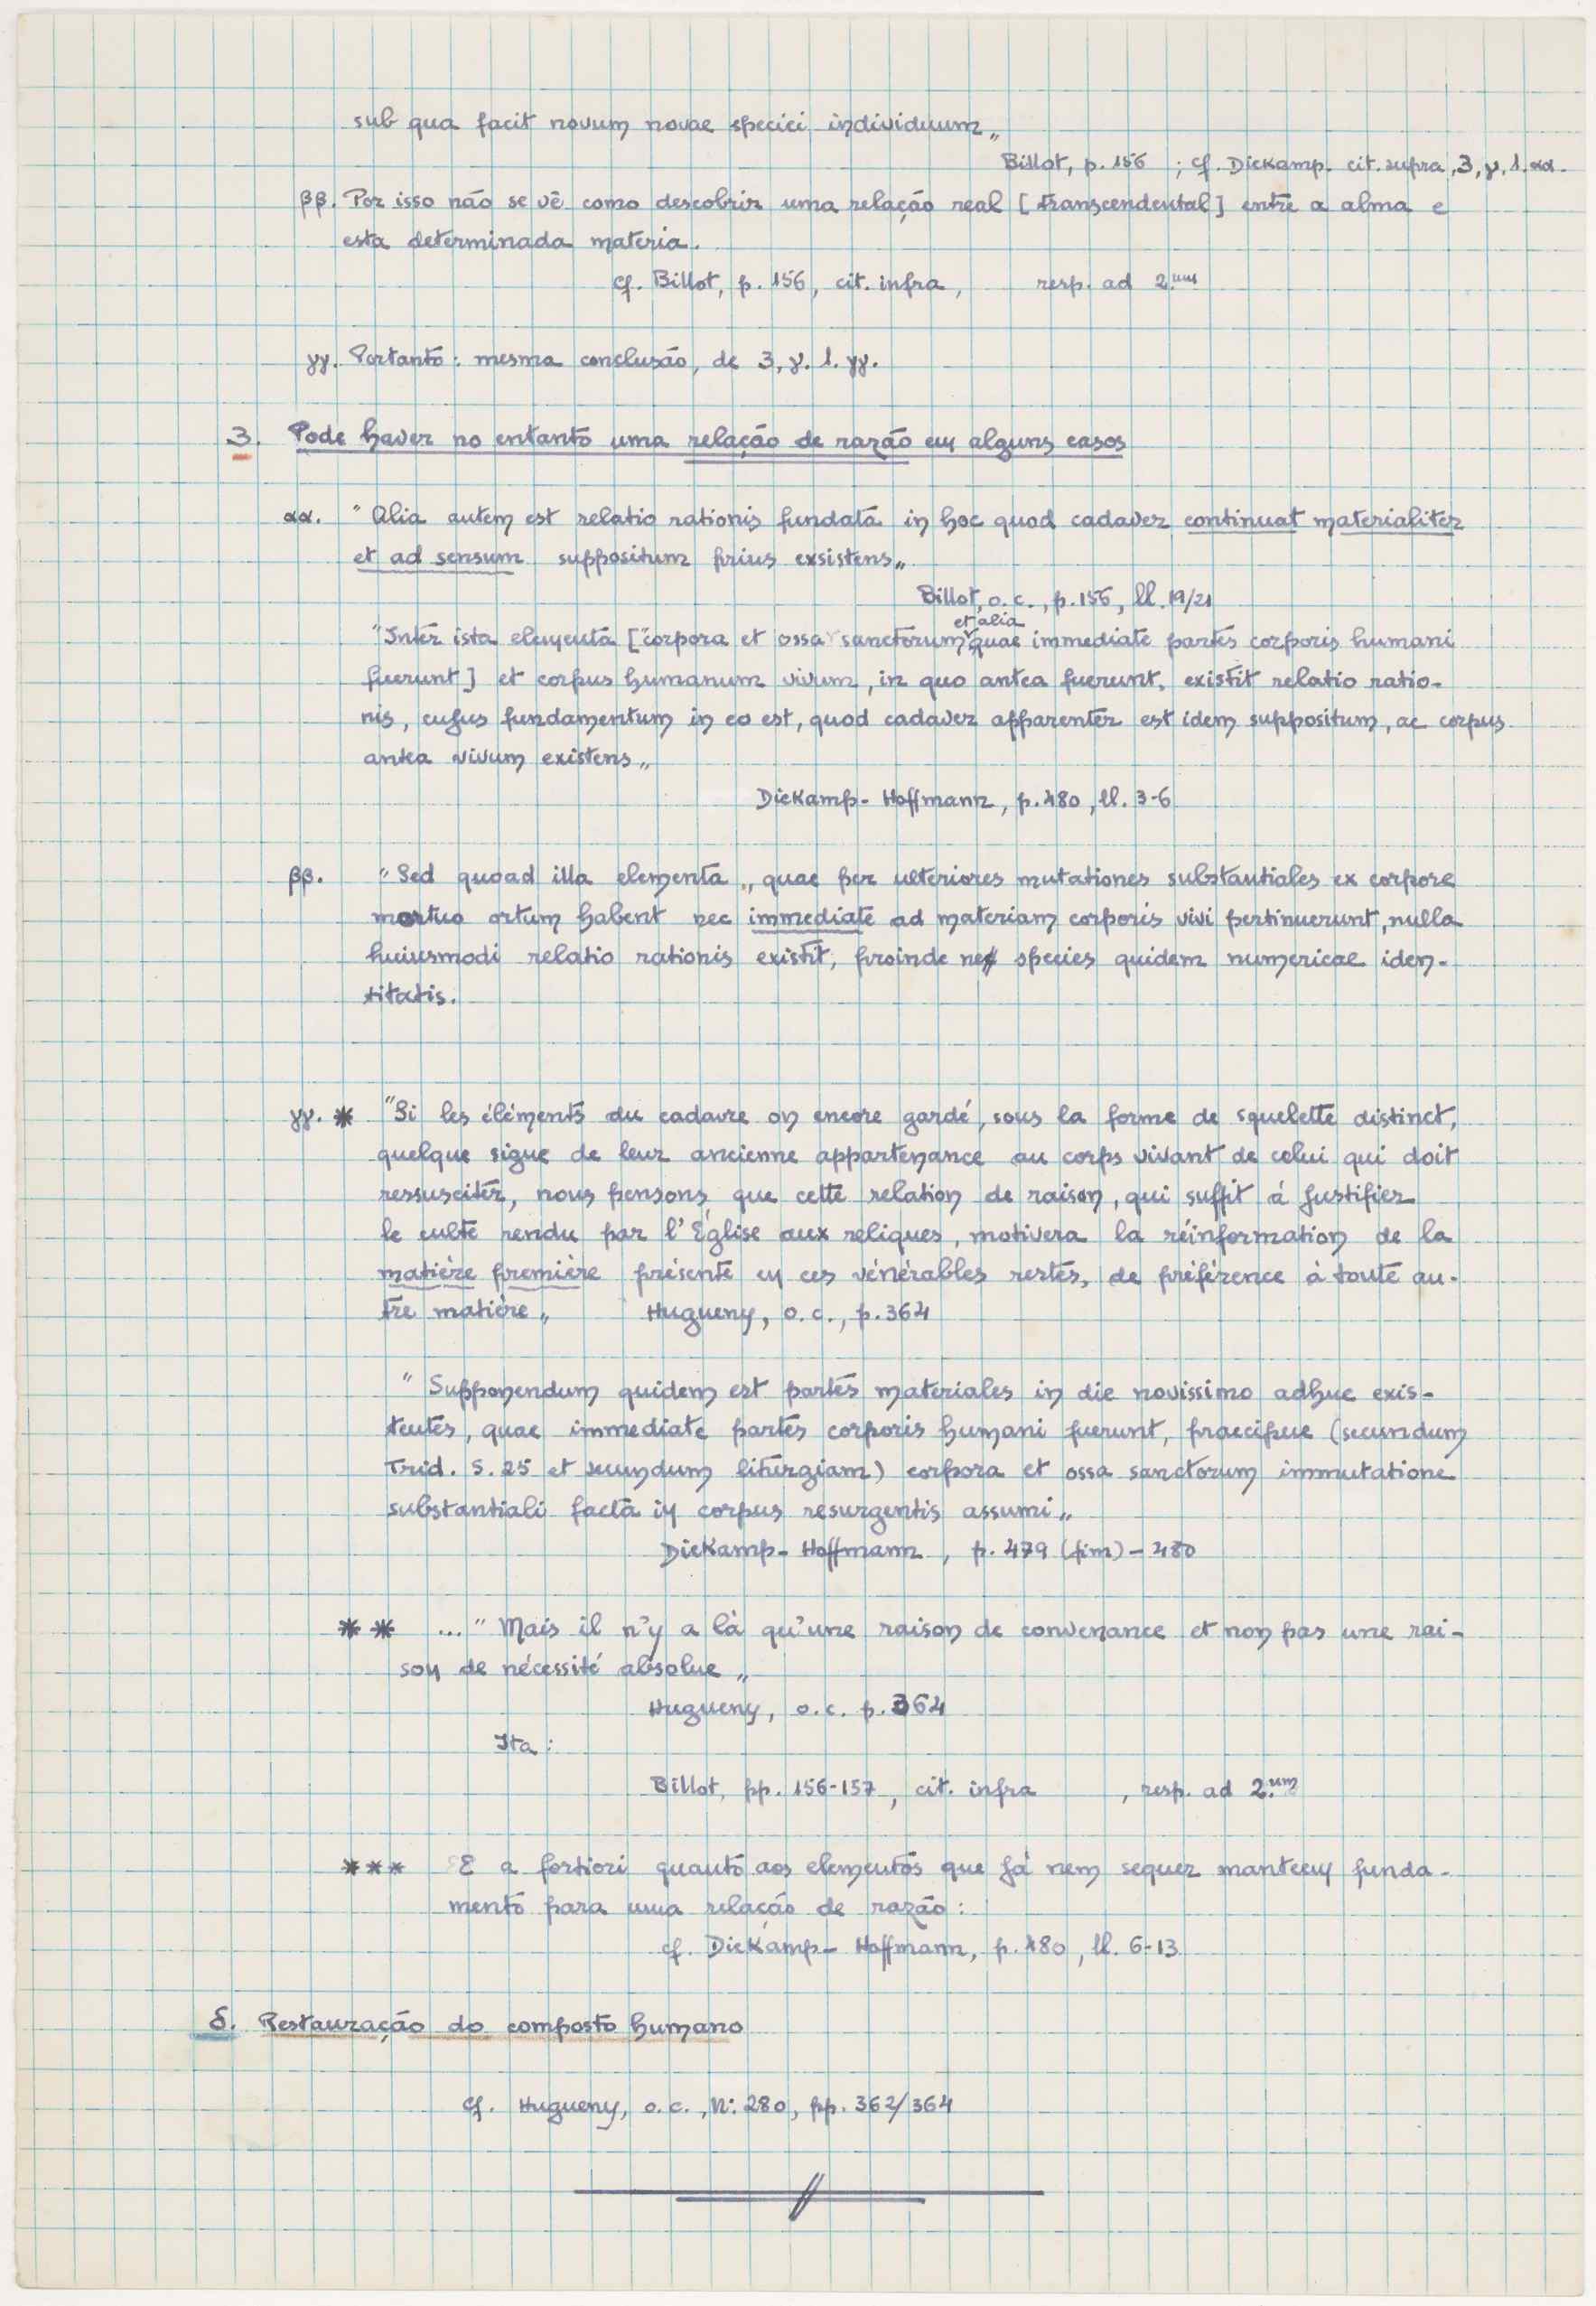 sub qua facit novum novae speciei individuum„
Billot, p. 156 ; cf. Diekamp. cit. supra, 3, γ. 1. αα.
ββ. Por isso não se vê como descobrir uma relação real [transcendental] entre a alma e
esta determinada materia.
cf. Billot, p. 156, cit. infra, resp. ad 2.um
γγ. Portanto: mesma conclusão, de 3, γ. 1. γγ.
3. Pode haver no entanto uma relação de razão em alguns casos
αα. "Alia autem est relatio rationis fundata in hoc quod cadaver continuat materialiter
et ad sensum suppositum prius exsistens„
Billot, o. c., p. 156, ll. 19/21
et alia
"Inter ista elementa ["corpora et ossa sanctorum" quae immediate partes corporis humani
fuerunt] et corpus humanum vivum, in quo antea fuerunt, existit relatio ratio-
nis, cujus fundamentum in eo est, quod cadaver apparenter est idem suppositum, ac corpus
antea vivum existens„
Diekamp - Hoffmann, p. 480, ll. 3-6
ββ. "Sed quoad illa elementa„ quae per ulteriores mutationes substantiales ex corpore
mortuo ortum habent nec immediate ad materiam corporis vivi pertinuerunt, nulla
huiusmodi relatio rationis existit, proinde ne species quidem numericae iden-
titatis.
γγ. * "Si les éléments du cadavre on encore gardé, sous la forme de squelette distinct,
quelque signe de leur ancienne appartenance au corps vivant de celui qui doit
ressusciter, nous pensons que cette relation de raison, qui suffit à justifier
le culte rendu par l'Église aux reliques, motivera la réinformation de la
matière première présente en ces vénérables restes, de préférence à toute au-
tre matière„ Hugueny, o. c., p. 364
"Supponendum quidem est partes materiales in die novissimo adhuc exis-
tentes, quae immediate partes corporis humani fuerunt, praecipue (secundum
Trid. S. 25 et secundum liturgiam) corpora et ossa sanctorum immutatione
substantiali facta in corpus resurgentis assumi„
Diekamp - Hoffmann, p. 479 (fim) - 480
** ... "Mais il n'y a là qu'une raison de convenance et non pas une rai-
son de nécessité absolue„
Hugueny, o. c. p. 364
Ita:
Billot, pp. 156-157, cit. infra , resp. ad 2.um
*** E a fortiori quanto aos elementos que já nem sequer manteem funda-
mento para uma relação de razão:
cf. Diekamp - Hoffmann, p. 480, ll. 6-13
δ. Restauração do composto humano
cf. Hugueny, o. c., N: 280, pp. 362/364